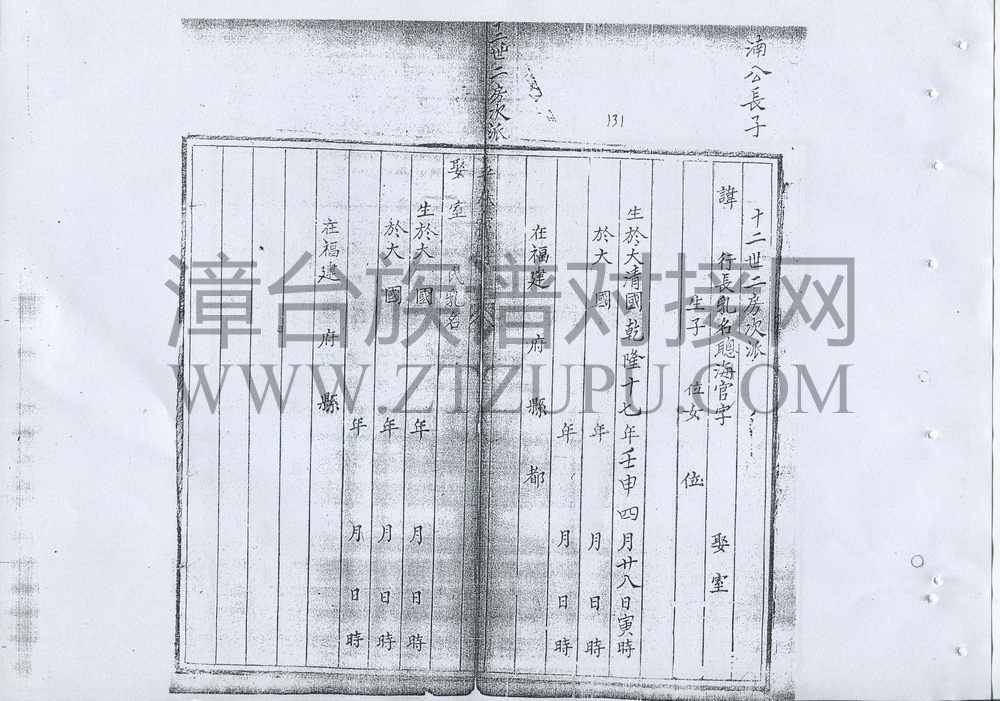 湳公長子
131
十二世二房次派
諱 行長乳名聰海官字 娶室
生子 位女 位
生於大清國乾隆十七年壬申四月廿八日寅時
於大 國 年 月 日 時
年 月 日 時
在福建 府 縣 都
世二房次派
娶室 氏乳名
生於大 國 年 月 日 時
於大 國 年 月 日 時
年 月 日 時
在福建 府 縣
漳台族谱对接网
WWW.ZTZUPU.COM